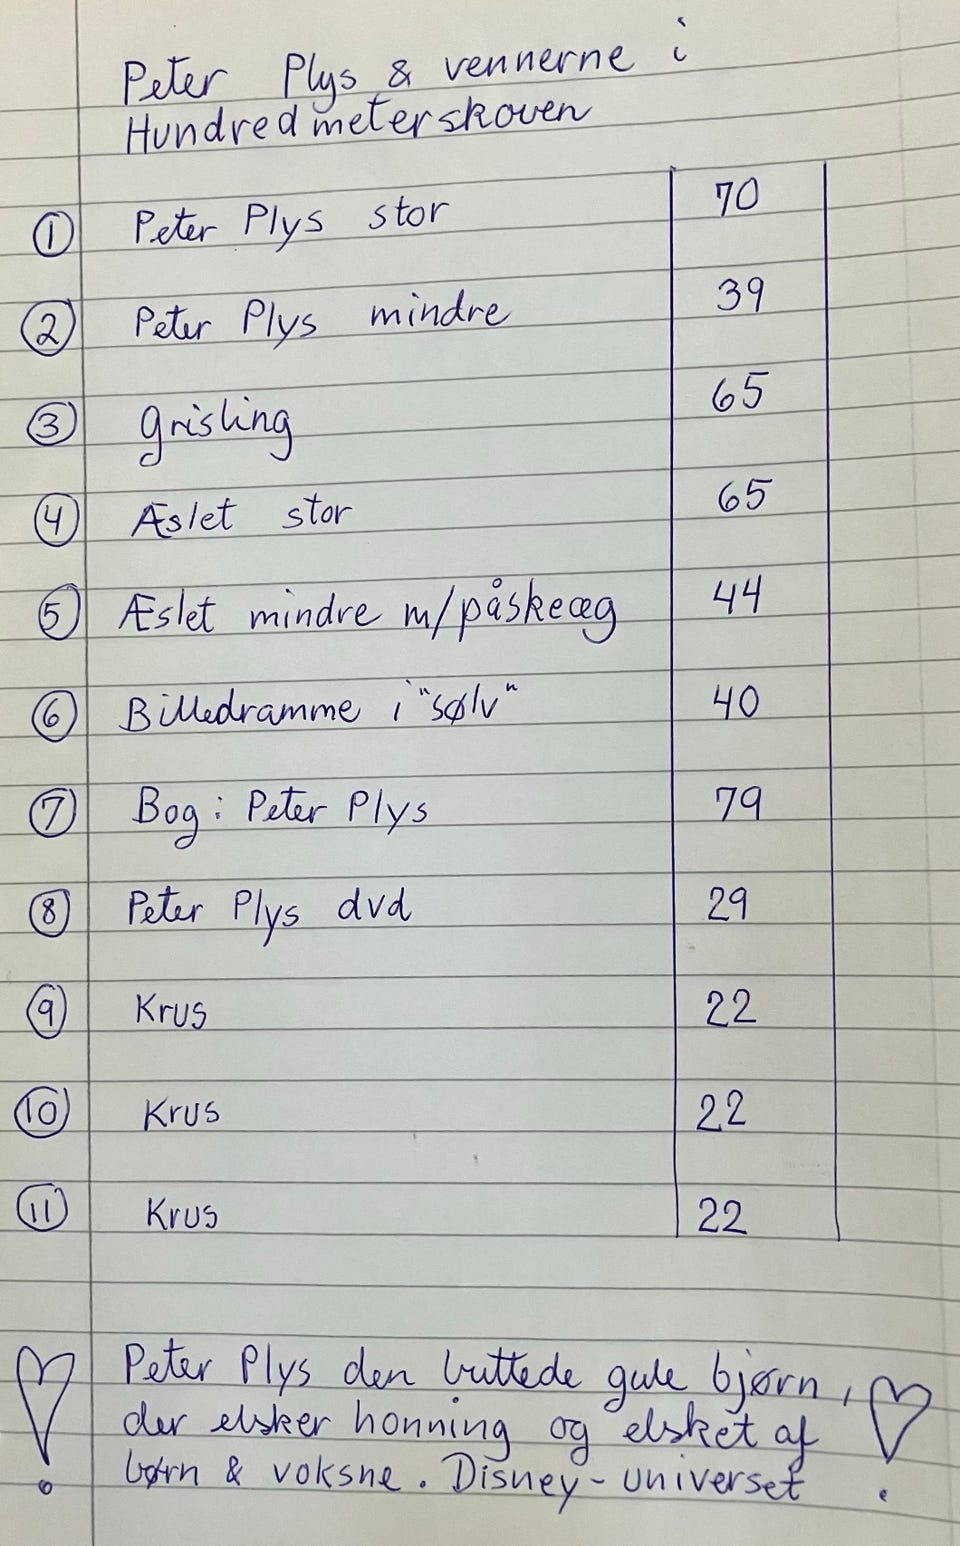 Peter Plys & vennerne i
Hundredmeterskoven
① Peter Plys stor 70
② Peter Plys mindre 39
③ Grisling 65
④ Æslet stor 65
⑤ Æslet mindre m/påskeæg 44
⑥ Billedramme i "sølv" 40
⑦ Bog: Peter Plys 79
⑧ Peter Plys dvd 29
⑨ Krus 22
⑩ Krus 22
⑪ Krus 22
Peter Plys den buttede gule bjørn,
der elsker honning og elsket af
børn & voksne. Disney-universet